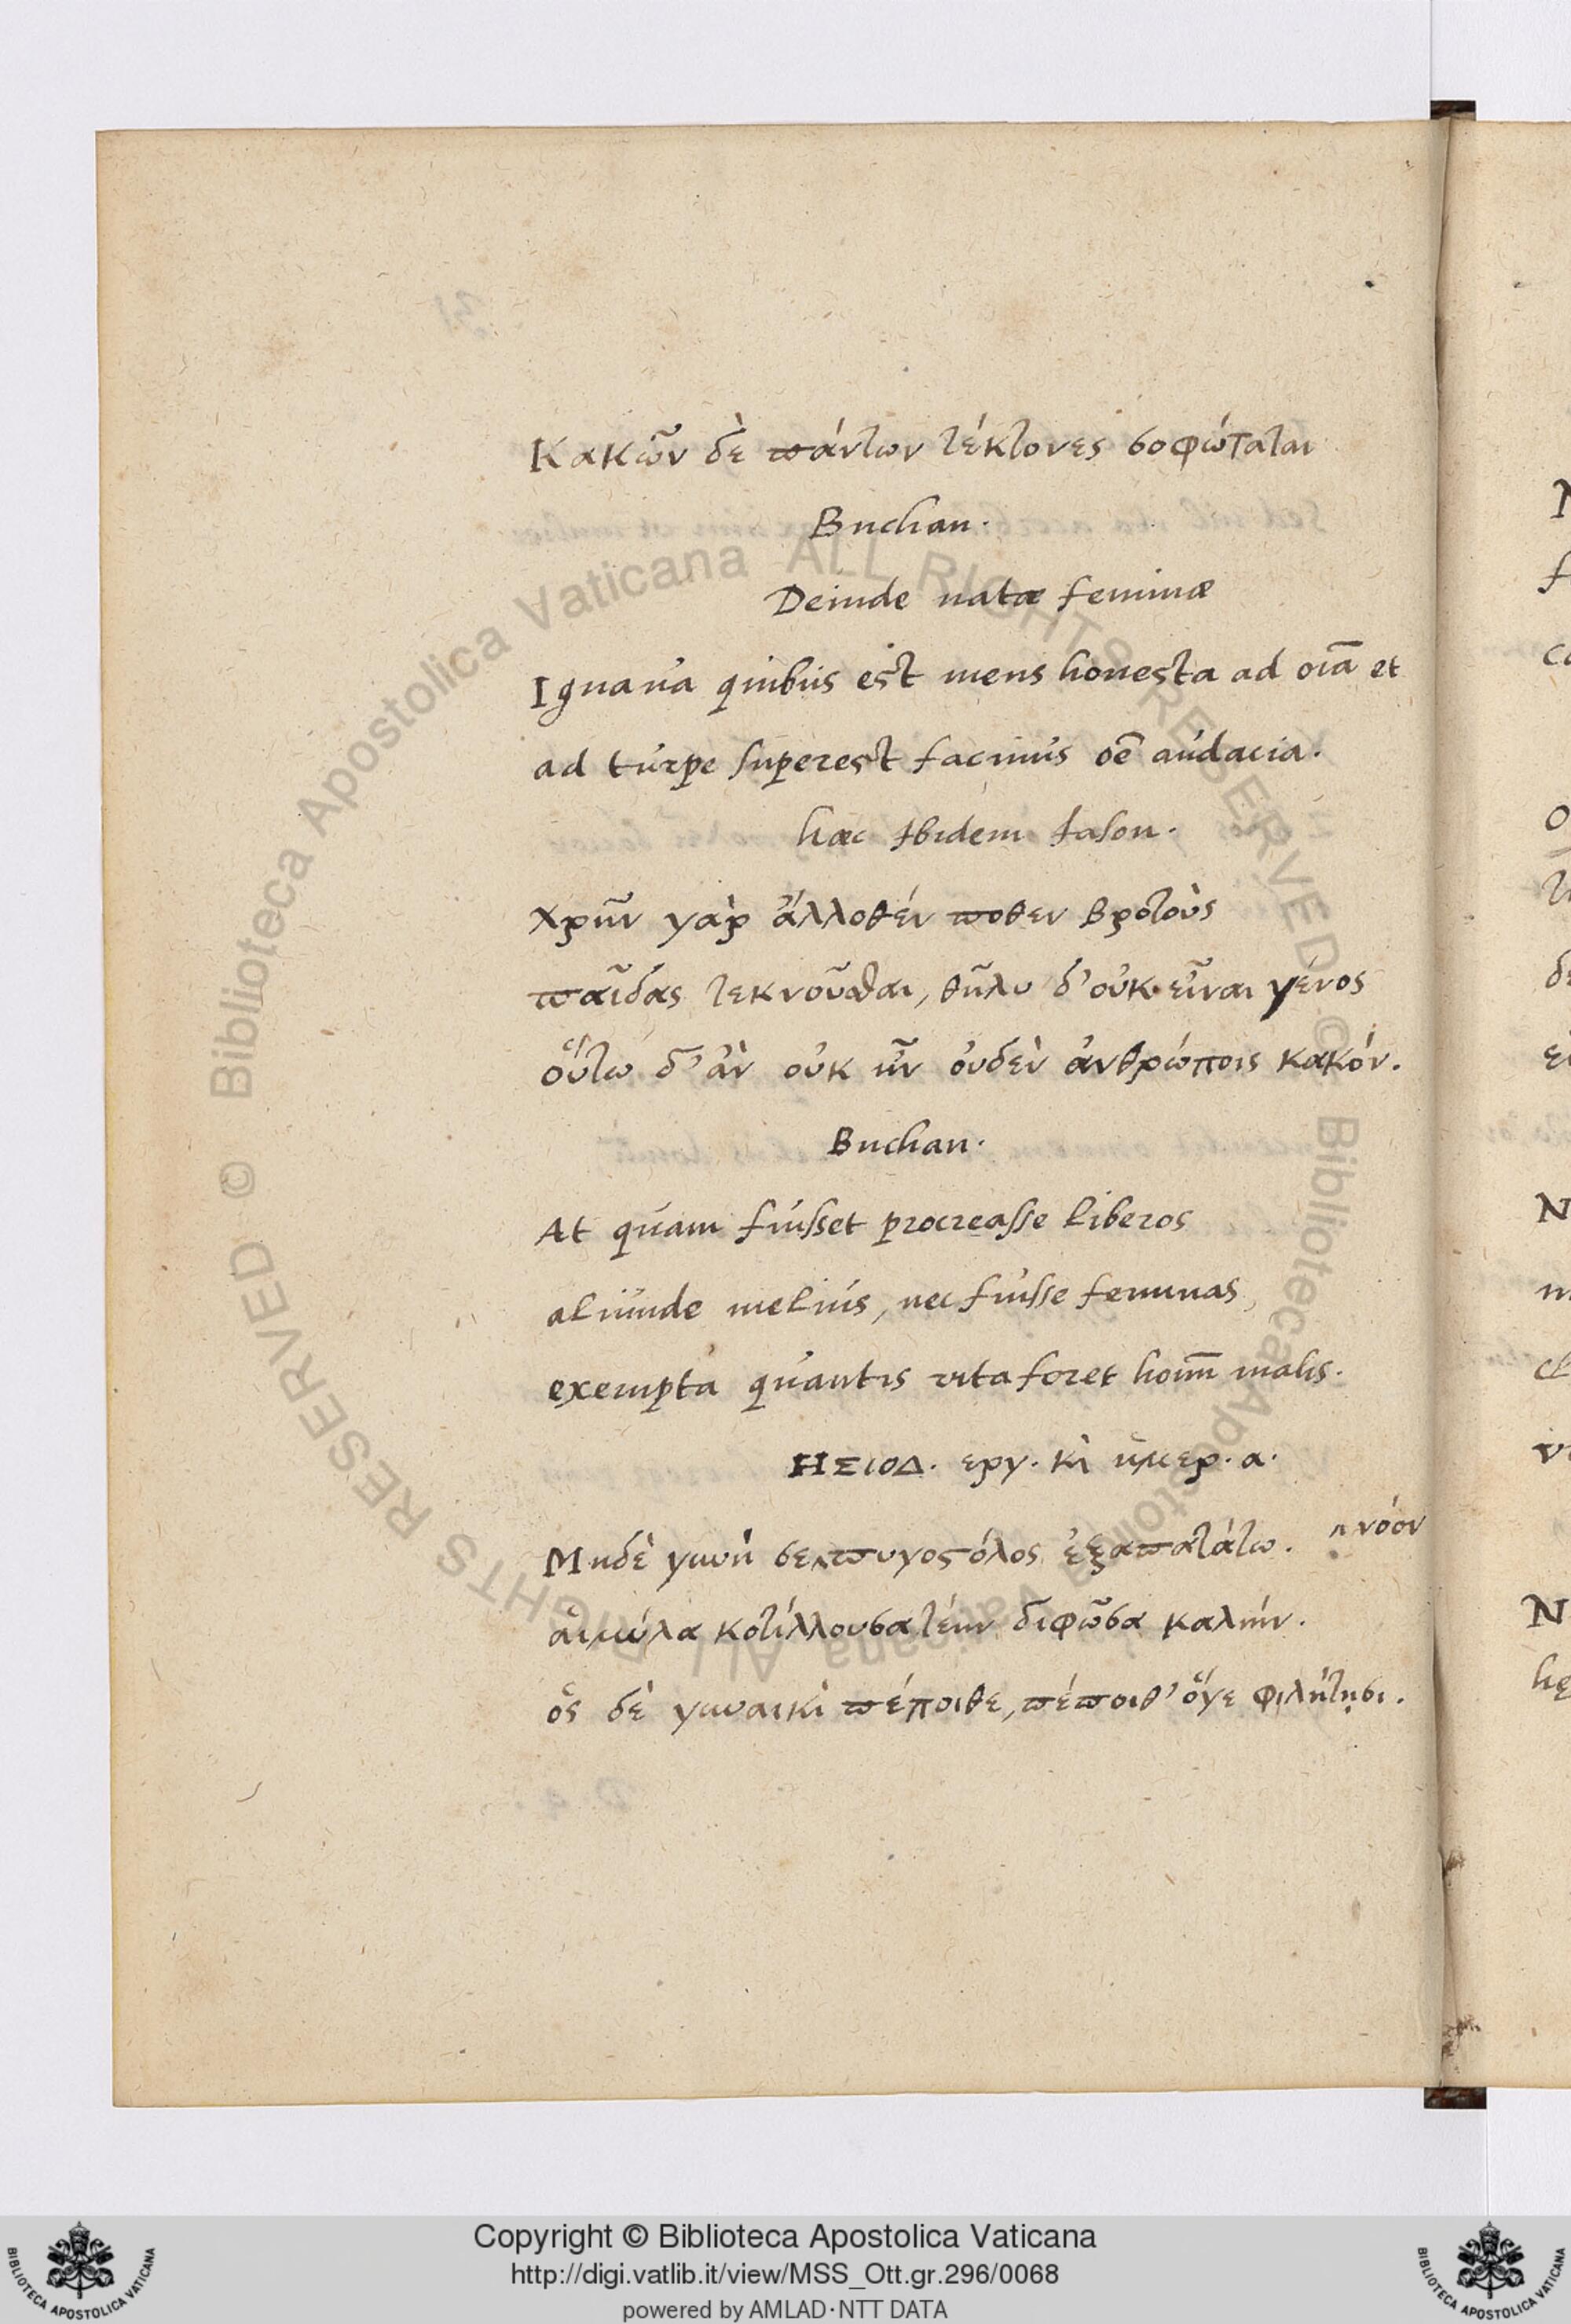 Κακῶν δὲ πάντων τέκτονες σοφώταται
Buchan.
Deinde natæ feminæ
Ignaua quibus est mens honesta ad oīa et
ad turpe superest facinus oē audacia.
hæc Ibidem Iason.
Χρῆν γὰρ ἄλλοθέν ποθεν βροτοὺς
παῖδας τεκνοῦσθαι, θῆλυ δ' οὐκ εἶναι γένος
οὕτω δ' ἂν οὐκ ἦν οὐδὲν ἀνθρώποις κακόν.
Buchan.
At quam fuisset procreasse liberos
aliunde melius, nec fuisse feminas,
exempta quantis vita foret homī malis.
ΗΣΙΟΔ. εργ. κὶ ἡμερ. α.
Μηδὲ γυνή σε‸πυγοστόλος ἐξαπατάτω. ‸ νόον
αἱμύλα κοτίλλουσα τέην διφῶσα καλιήν.
ὃς δὲ γυναικὶ πέποιθε, πέποιθ' ὅγε φιλήτῃσι.
Biblioteca Apostolica Vaticana ALL RIGHTS RESERVED ©
Biblioteca Apostolica Vaticana ALL RIGHTS RESERVED ©
Copyright © Biblioteca Apostolica Vaticana
http://digi.vatlib.it/view/MSS_Ott.gr.296/0068
powered by AMLAD·NTT DATA
BIBLIOTECA APOSTOLICA VATICANA
BIBLIOTECA APOSTOLICA VATICANA